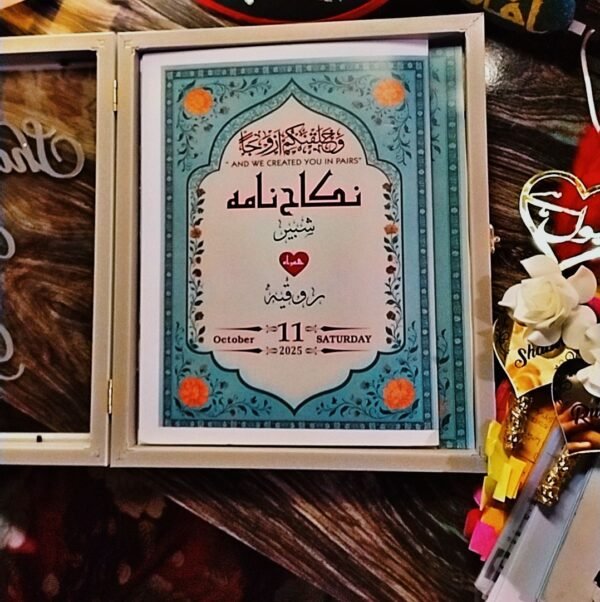 وَخَلَقْنٰكُمْ اَزْوَاجًا
" AND WE CREATED YOU IN PAIRS"
نکاح نامہ
شبیر
ہمراہ
روقیہ
October 11 SATURDAY
2025